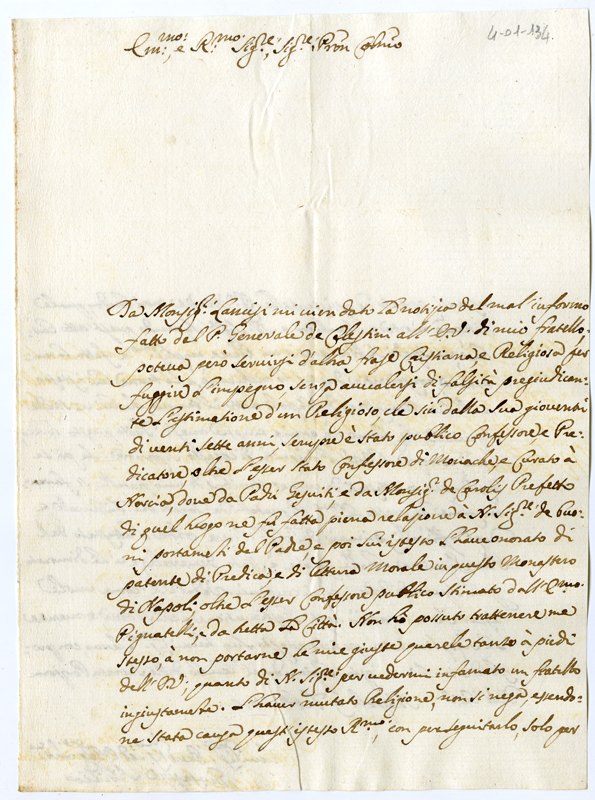 4-01-134.
Em:mo, e R:mo Sig:re, Sig:re Pron Colmo
Da Monsig:r Lancisi mi vien dato La notizia del mal'informo
fatto dal P. Generale de Celestini all'E.V. di mio fratello,
poteva però servirsi d'altra frase Cristiana e Religiosa per
fuggire L'impegno senza avvalersi di falsità pregiudican-
te L'estimatione d'un Religioso, che sin dalla sua gioventù
di venti sette anni, sempre è stato publico Confessore e Pre-
dicatore, oltre L'esser stato Confessore di Monache, e Curato à
Norcia, dove da Padri Gesuiti, e da Monsig:r de Carolis Prefetto
di quel luogo ne fù fatta piena relazione à N. Sig:re de buo-
ni portamenti del Padre, e poi lui istesso L'have onorato di
patente di Predica, e di lettura Morale in questo Monastero
di Napoli, oltre L'esser Confessore publico stimato dall'Em:mo
Pignatelli, e da tutta La Città. Non hò possuto trattenere me
stesso, à non portarne le mie giuste querele tanto à piedi
dell'E.V. quanto di N. Sig:re per vedermi infamato un fratello
ingiustamente. L'haver mutato Religione, non si nega, essendo-
ne stata causa quest'istesso R:mo, con perseguitarlo, solo per